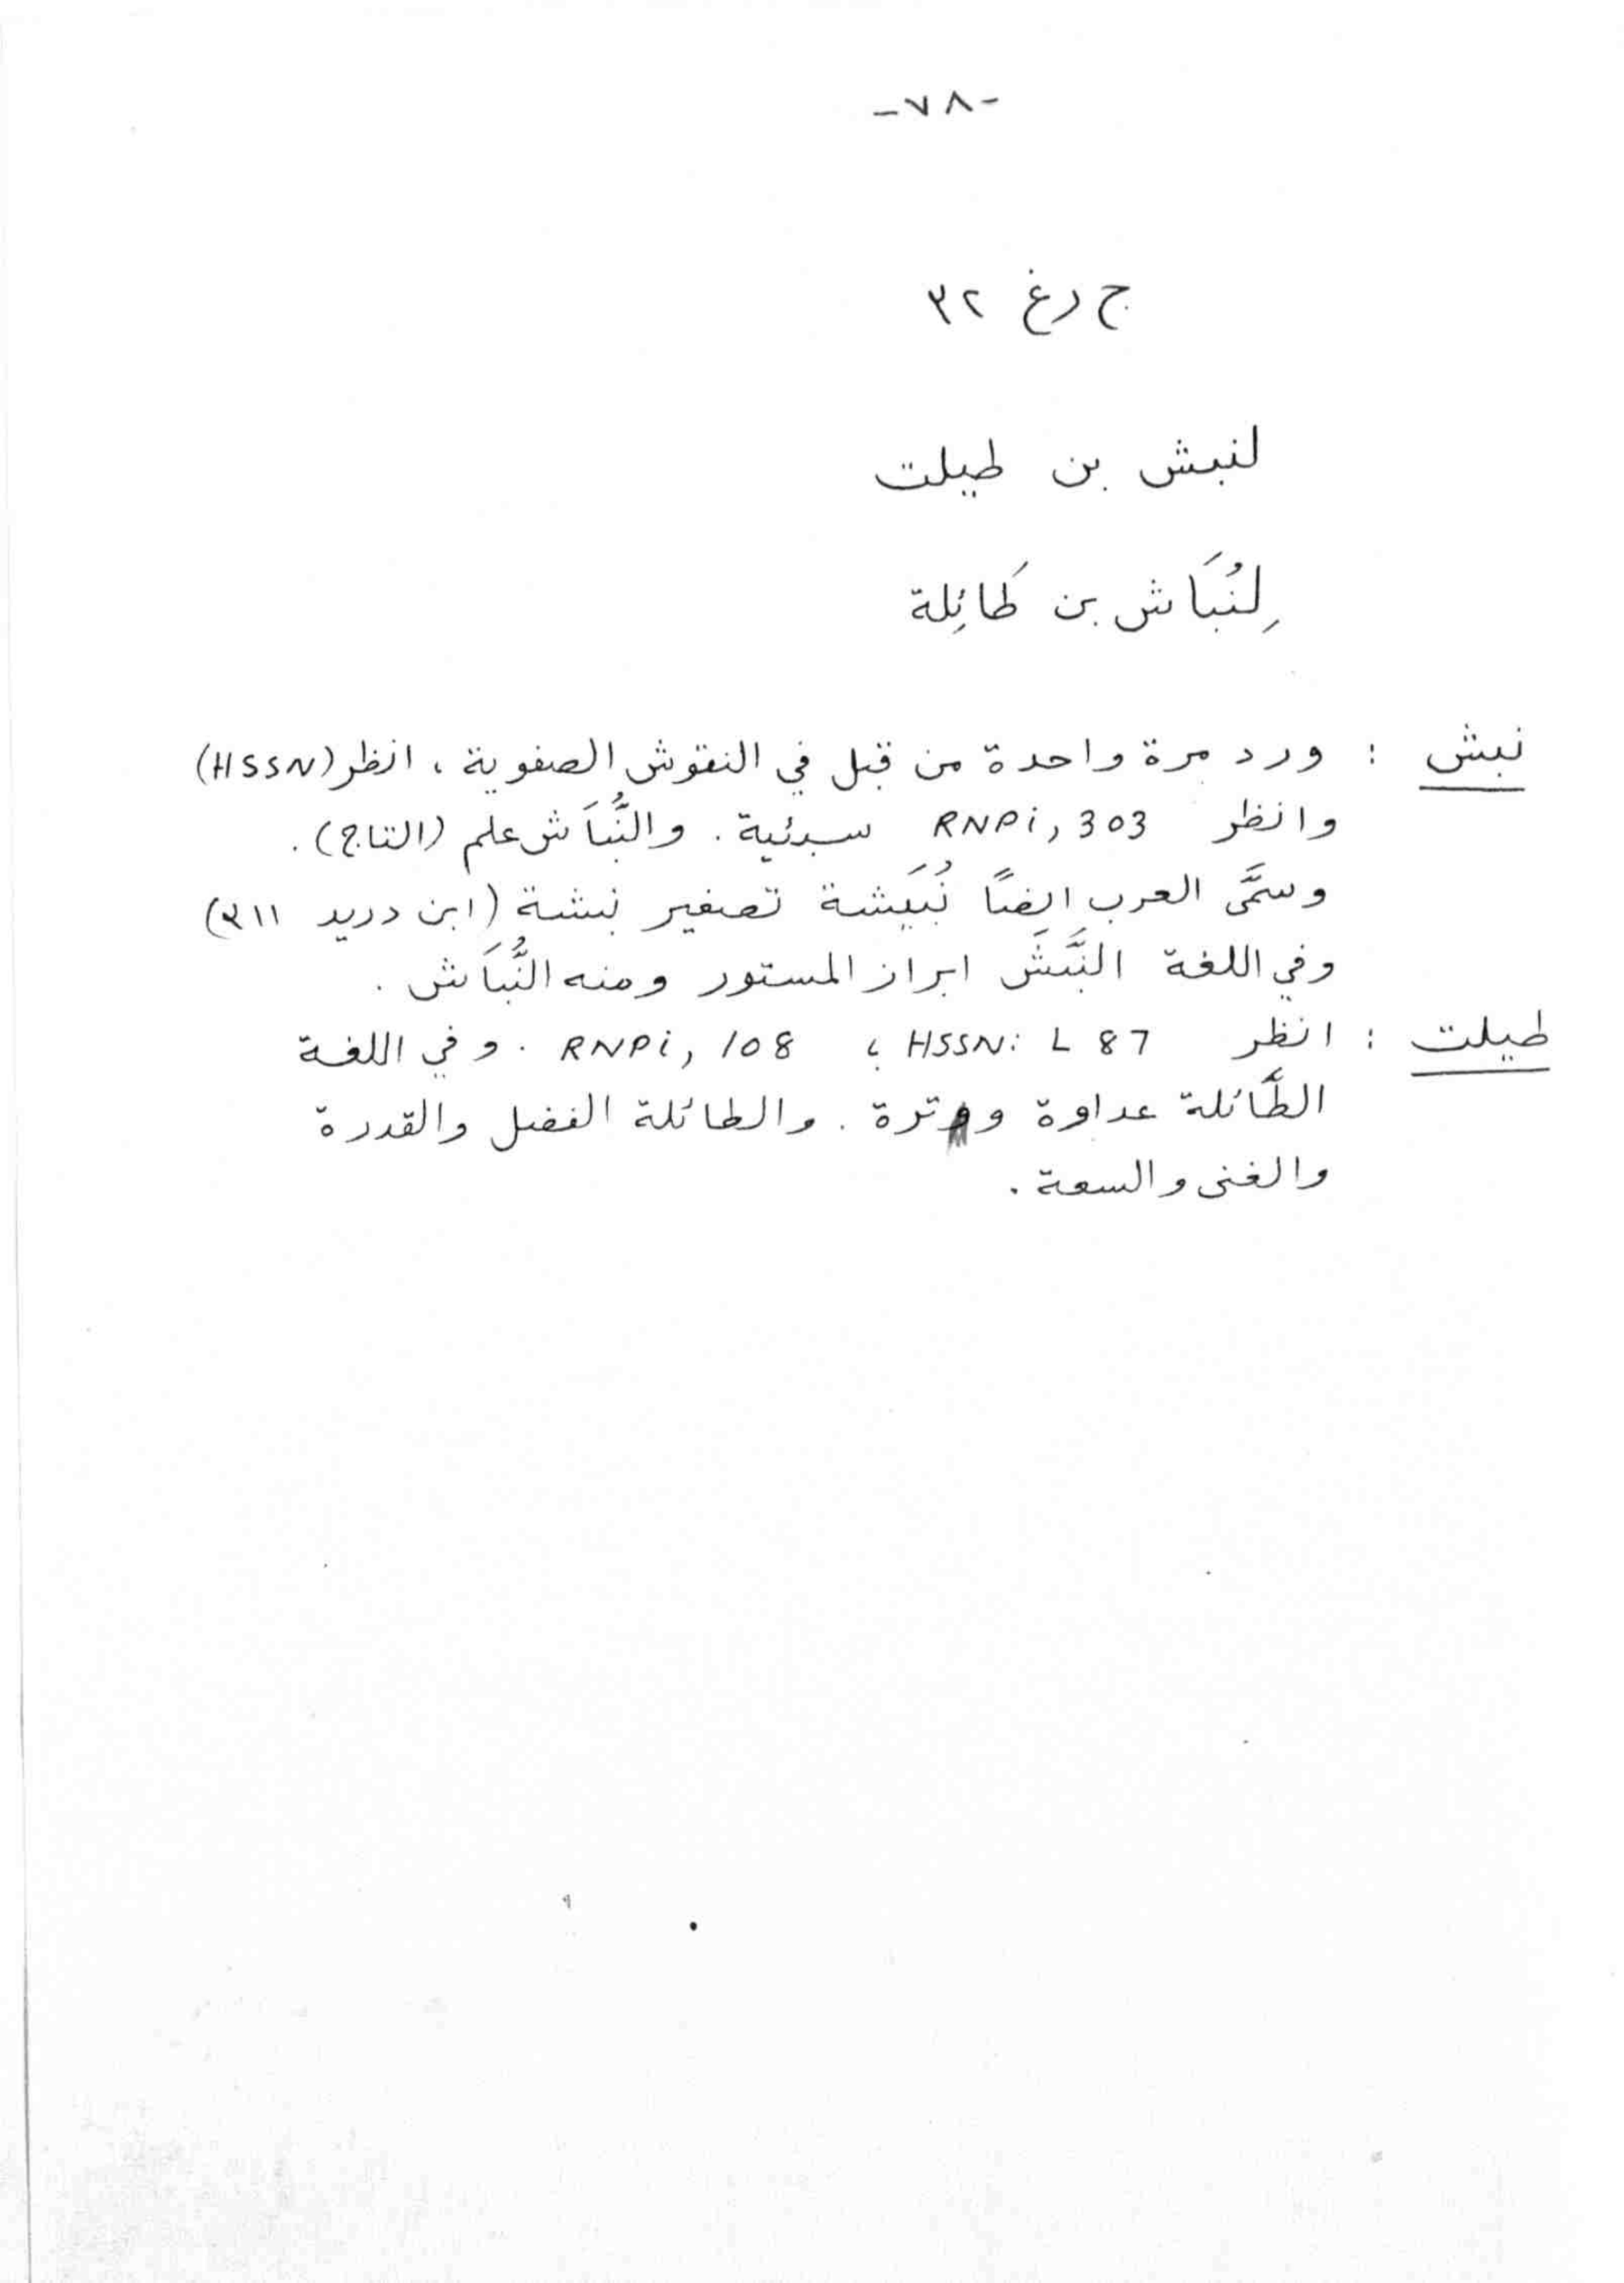 -٧٨-
ج رغ ٣٢
لنبش بن طيلت
لِنُبَاش بن طَائِلة
نبش : ورد مرة واحدة من قبل في النقوش الصفوية ، انظر (HSSN)
وانظر RNPi, 303 سبئية . والنُّبَاش علم (التاج) .
وسمَّى العرب ايضاً نُبَيشة تصغير نبشة (ابن دريد ٣١١)
وفي اللغة النَّبَشَ ابراز المستور ومنه النُّبَاش .
طيلت : انظر HSSN: L 87 ؛ RNPi, 108 . وفي اللغة
الطَّائلة عداوة وترة . والطائلة الفضل والقدرة
والغنى والسعة .